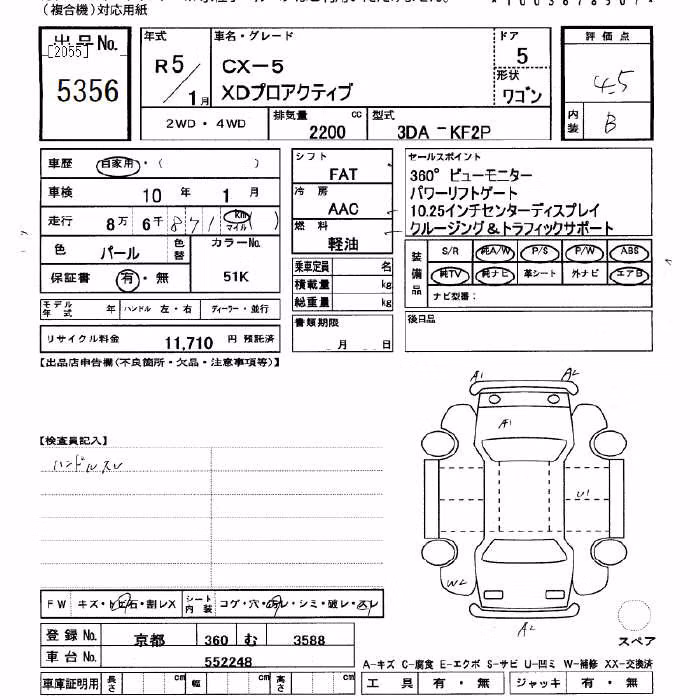 (複合機)対応用紙
出品No.
[2055]
5356
年式
R5/1月
車名・グレード
CX-5
XDプロアクティブ
ドア
5
形状
ワゴン
評価点
4.5
内装
B
2WD・4WD
排気量 2200 cc
型式 3DA-KF2P
車歴 自家用・( )
車検 10年 1月
走行 8万 6千 871 km マイル ( )
色 パール 色替
カラーNo. 51K
保証書 有・無
モデル年式 年 ハンドル 左・右 ディーラー・並行
リサイクル料金 11,710 円 預託済
シフト
FAT
冷房
AAC
燃料
軽油
乗車定員 名
積載量 kg
総重量 kg
書類期限
月 日
セールスポイント
360°ビューモニター
パワーリフトゲート
10.25インチセンターディスプレイ
クルージング&トラフィックサポート
装備品
S/R 純A/W P/S P/W ABS
純TV 純ナビ 革シート 外ナビ エアB
ナビ型番:
後日品
【出品店申告欄(不良箇所・欠品・注意事項等)】
【検査員記入】
ハンドルスレ
A1 A2
A1
U1
W2
A2
スペア
FW キズ・ヒ石・割レX シート内装 コゲ・穴・汚レ・シミ・破レ・スレ
登録No. 京都 360 む 3588
車台No. 552248
車庫証明用 長さ cm 幅 cm 高さ cm
A-キズ C-腐食 E-エクボ S-サビ U-凹ミ W-補修 XX-交換済
工具 有・無 ジャッキ 有・無